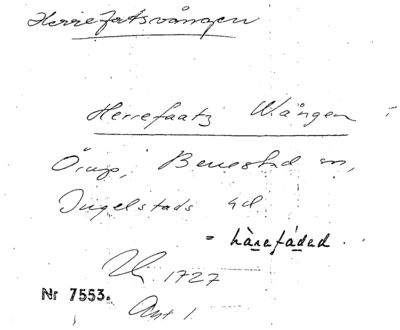 Herrefatsvången
Herrefaatz Wången i
Örup, Benestad sn,
Ingelstads hd.
= hàrefádad.
1727
Nr 7553.
Akt 1.